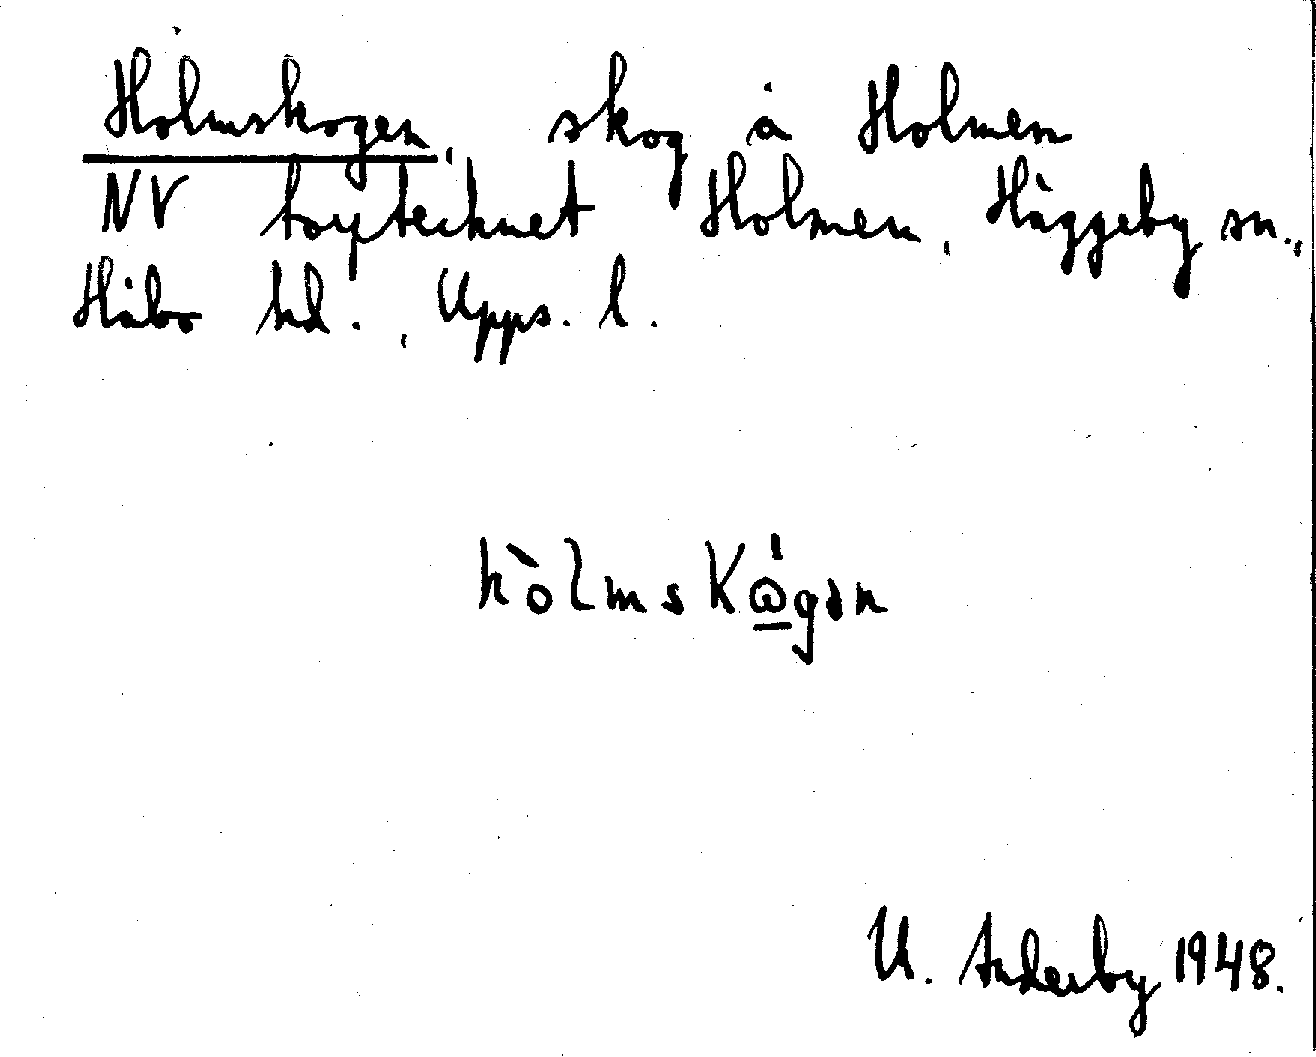 Holmskogen, skog å Holmen
NV torptecknet Holmen, Häggeby sn.,
Håbo hd., Upps. l.
hòlmskώ̲gən
U. Anderby 1948.